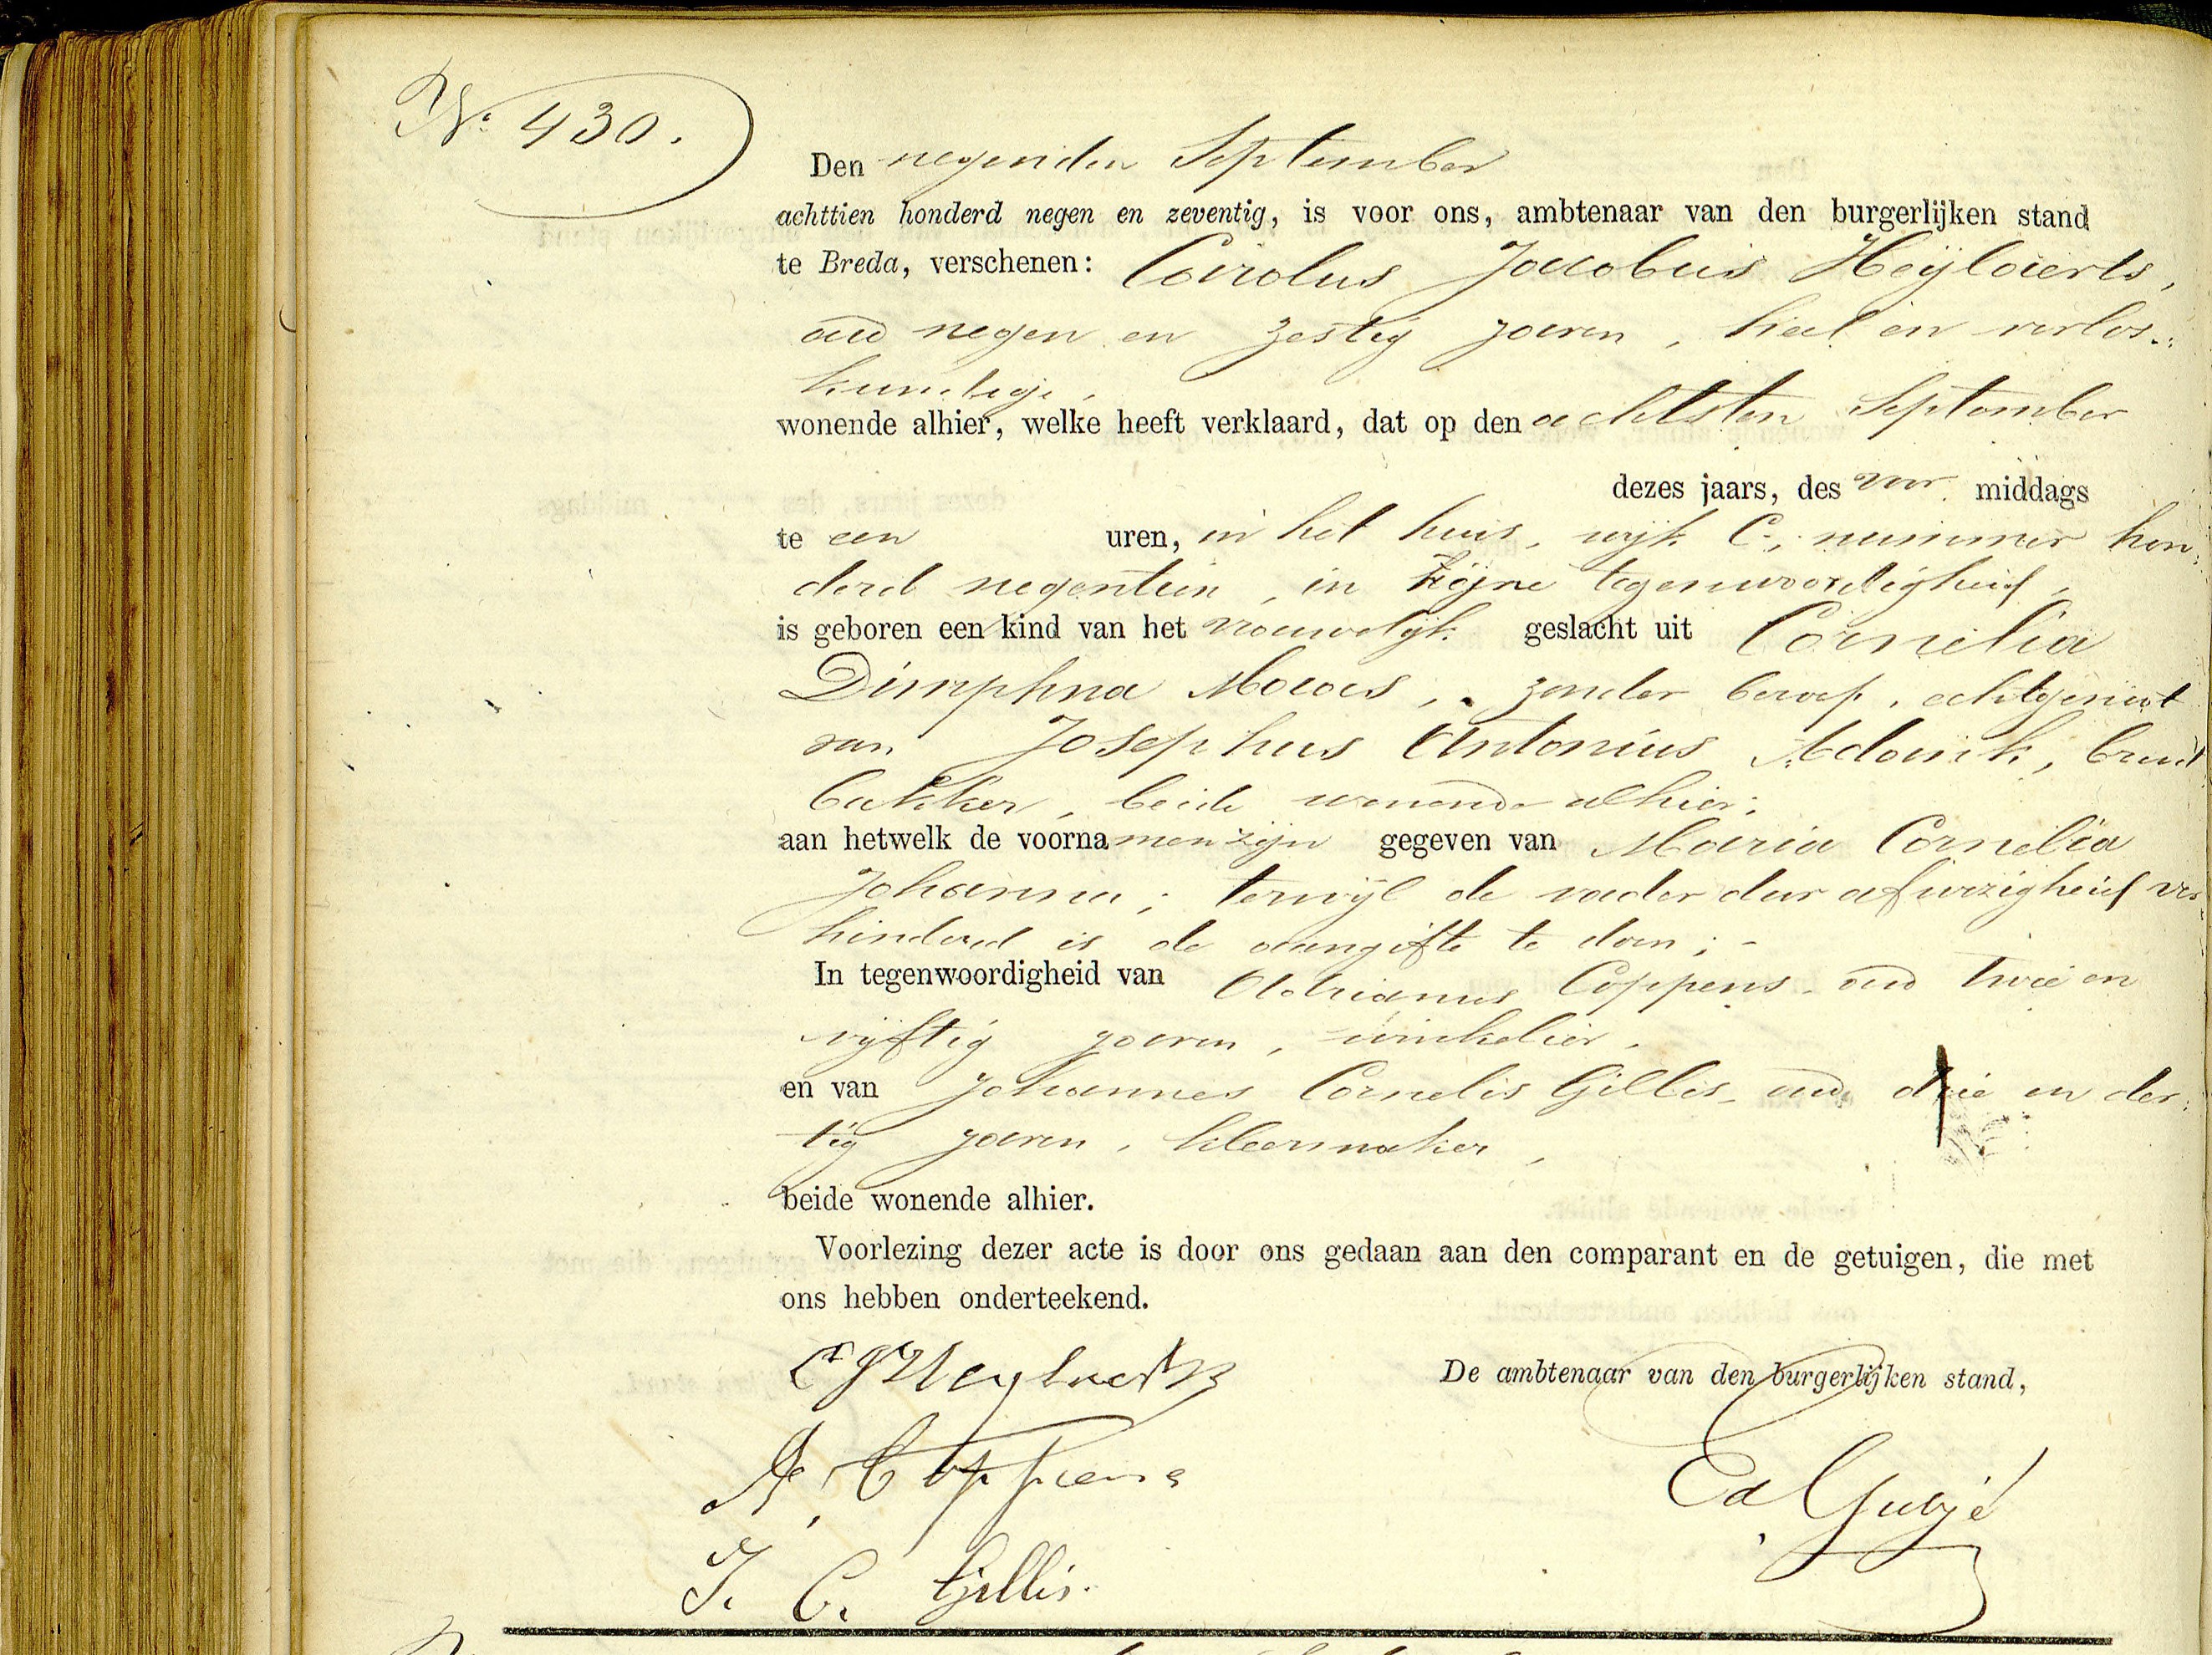 No. 430.
Den negenden September
achttien honderd negen en zeventig, is voor ons, ambtenaar van den burgerlijken stand
te Breda, verschenen: Carolus Jacobus Heijlaerts,
oud negen en zestig jaren, heel en verlos-
kundige,
wonende alhier, welke heeft verklaard, dat op den achtsten September
dezes jaars, des voor middags
te een uren, in het huis, wijk C, nummer hon-
derd negentien, in zijne tegenwoordigheid,
is geboren een kind van het vrouwelijk geslacht uit Cornelia
Dimphna Maas, zonder beroep, echtgenoot
van Josephus Antonius Adank, brood
bakker, beide wonende alhier;
aan hetwelk de voornamen zijn gegeven van Maria Cornelia
Johanna; terwijl de vader door afwezigheid ver-
hinderd is de aangifte te doen;
In tegenwoordigheid van Adrianus Coppens oud twee en
vijftig jaren, winkelier,
en van Johannes Cornelis Gillis, oud drie en der-
tig jaren, kleermaker,
beide wonende alhier.
Voorlezing dezer acte is door ons gedaan aan den comparant en de getuigen, die met
ons hebben onderteekend.
CJHeylaerts
De ambtenaar van den burgerlijken stand,
A. Coppens
Ed
J. C. Gillis.